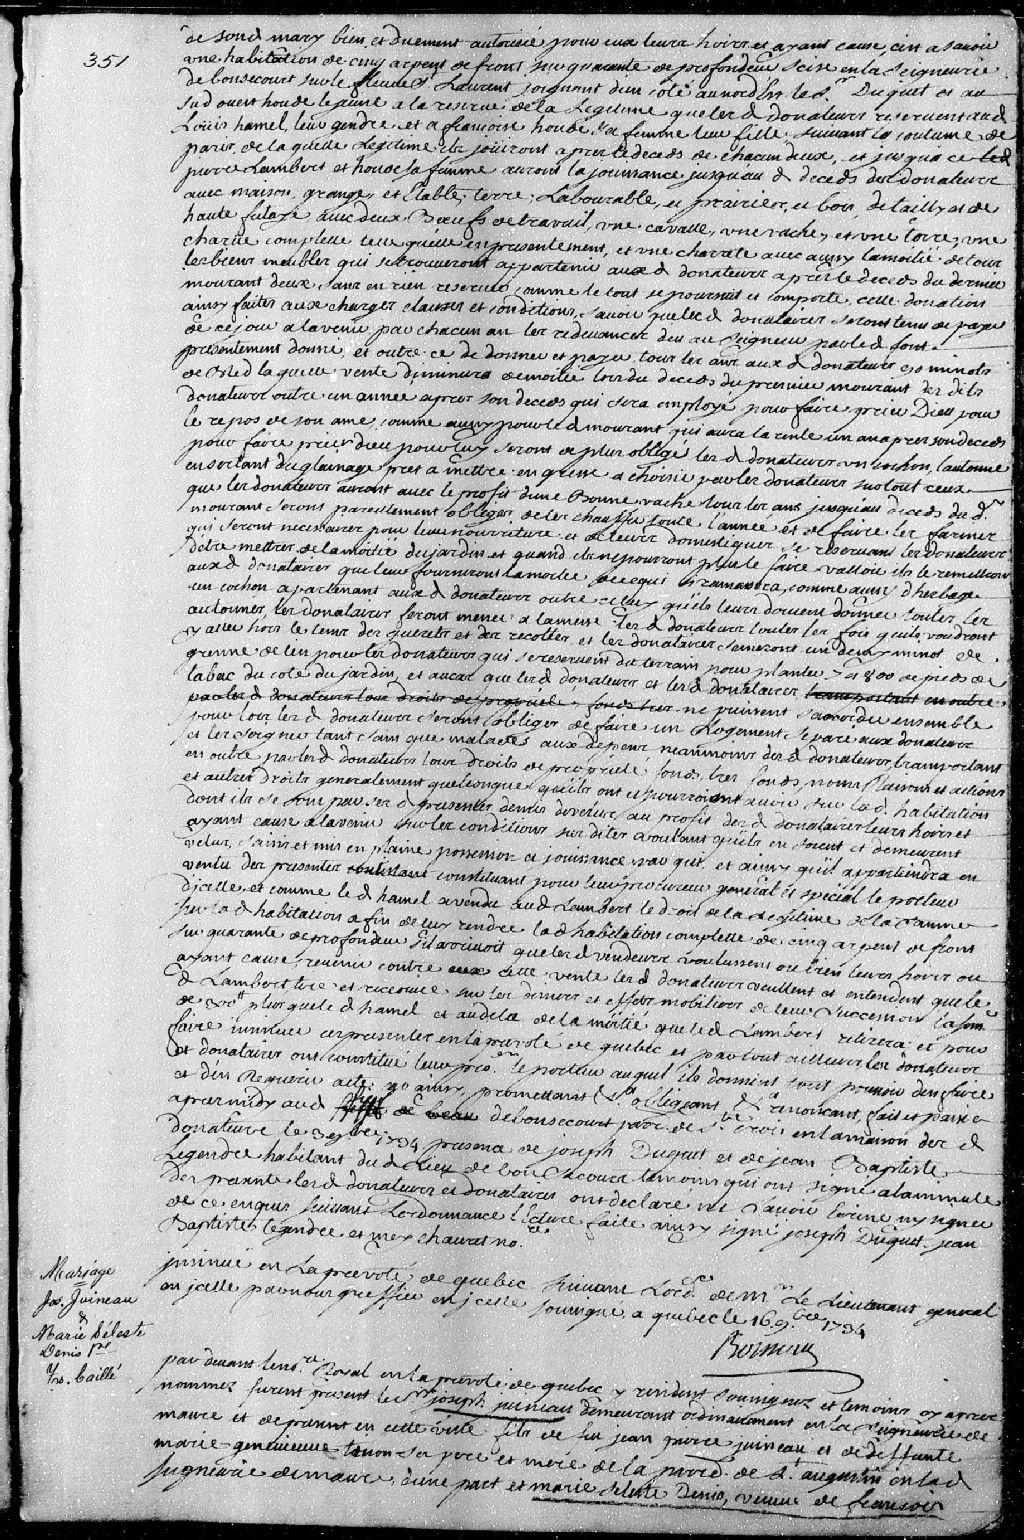 351
de sond mary bien et duement autorisée pour eux leurs hoirs et ayant cause, cest a savoir
une habitation de cinq arpens de front sur quarante de profondeur scise en la seigneurie
de bonsecourt sur le fleuve St Laurent joignant d'un coté au nord Est le Sr Duquet et au
sud ouest houde le jeune a la reserve de la Legitime que les d donateurs reservent aud
Louis hamel, leur gendre, et a francoise houde, sa femme leur fille suivant la coutume de
paris, de la quelle Legitime ils jouiront apres le deceds de chacun deux, et jusqua ce led
pierre Lambert et houde sa femme auront la jouissance jusqu'au d deceds des donateurs
avec maison, grange, et Etable, terre, Labourable, et prairies, et bois, de tailly et de
haute futaye avec deux Boeufs de travail, une cavalle, une vache, et une torre, une
charue complette telle quelle est presentement, et une charete avec aussy la moitié de tous
les biens meubles qui se trouveront appartenir aux d donateurs apres le deceds du dernier
mourant deux sans en rien reserver, comme le tout se poursuit et comporte, cette donation
ainsy faites aux charges clauses et conditions, savoir que les d donataires seront tenus de payer
de ce jour a lavenir par chacun an les redevances deu au seigneur par led fond
presentement donné, et outre ce de donner et payer tous les ans aux d donateurs 30 minots
de Bled laquelle rente diminura de moitié lors du deceds du premier mourant des dits
donateurs outre un année apres son deceds qui sera employé pour faire prier Dieu pour
le repos de son ame, comme aussy pour le d mourant qui aura la rente un an apres son deceds
pour faire prier dieu pour luy seront de plus obligé les d donateurs un cochon, l'automne
en sortant du glainage pret a mettre en gresse a choisir par les donateurs sur tout ceux
que les donateurs auront avec le profit d'une Bonne vache tous les ans jusqu'au deceds du d.
mourant seront pareillement obligés de les chauffer toute l'annee et de faire les farines
qui seront necessaires pour leurs nourriture et de leurs domestiques se reservant les donateurs
d'être mettres de la moitié du jardin et quand ils ne pouront plus le faire valloir ils le remettront
aux d donataires que leur fourniront la moitié de ce qui si ramassera, comme aussy d'herbager
un cochon apartenant aux d donateurs outre celuy qu'ils leurs doivent donner toutes les
automnes, les donataires feront mener a la messe les d donateurs toutes les fois quils voudront
y aller hors le tems des guerets et des recoltes et les donataires semeront un demy minot de
grenne de lin pour les donateurs qui se reservent du terrain pour planter 7 a 800 de pieds de
tabac du coté du jardin, et aucas que les d donateurs et les d donataires transportant en outre
par les d donateurs tous droits de propriete, fonds tres ne puissent saccorder ensemble
pour lors les d donateurs seront obligés de faire un Logement separé aux donateurs
et les soigner tant sains que malades aux depens neanmoins des d donateurs, transportant
en outre par les d donateurs tous droits de propriété fonds, tres fonds, noms, raisons et actions
et autres droits generalement quelconque qu'ils ont et pourroient avoir sur lad. habitation
dont ils se sont par ces d presentes demis devetus, au profit des d donataires leurs hoirs et
ayant cause a lavenir sur les conditions sus dites voulant qu'ils en soient et demeurent
vetus, saisis et mis en plaine possession et jouissance par qui, et ainsy quil appartiendra en
vertu des presentes constituant pour leur procureur general et special le porteur
d'icelle, et comme le d hamel a vendu aud Lambert le droit de la Legitime de sa femme
sur la d habitation afin de luy rendre la d habitation complette de cinq arpens de front
sur quarante de profondeur sil arrivoit que les d vendeurs voulussent ou bien leurs hoirs ou
ayant cause, revenir contre cette vente les d donateurs veullent et entendent que le
d Lambert tire et recoive sur les deniers et effets mobiliers de leur succession la som
plus que le d hamel et audela de la moitié que le d Lambert retirera et pour
faire insinuer ces presentes en la prevoté de quebec et par tout ailleurs les donateurs
et donataires ont constitué leur pro.eur le porteur auquel ils donnent tout pouvoir den faire
et den Requerir acte: car ainsy, promettant &c. obligeant &c. renoncant, fait et passé
apres midy aud de bonsecourt paroe. de Ste croix en la maison des d
donateurs le 3 9bre 1734 presence de joseph Duquet et de jean Baptiste
Legendre habitant du d Lieu de bon Secourt temoins qui ont signé a la minute
des presente les d donateurs et donataires ont declaré ne savoir Ecrire ny signer
de ce enquis suivant Lordonnance Lecture faite ainsy signé joseph Duquet. jean
Baptiste Legendre et moy chauret no.re
jnsinué en La prevoté de quebec suivant Lord.ce de Mr Le Lieutenant general
en jcelle par nous greffier en jcelle soussigné, a quebec le 16 9.bre 1734
Boisseau
Mariage
Jos. Juineau
&
Marie Séleste
Denis Vve
Frs. Caillé
par devant le no.re Royal en la prevoté de quebec y residant soussigné et temoins cy apres
nommez furent present le Sr joseph juineau demeurant ordinairement en la seigneurie de
maure et de present en cette ville fils de feu jean pierre juineau et de deffunte
marie genevieve tinon ses pere et mere de la paroe. de St augustin en lad
seigneurie de maure, dune part et marie seleste Denis, veuve de francois